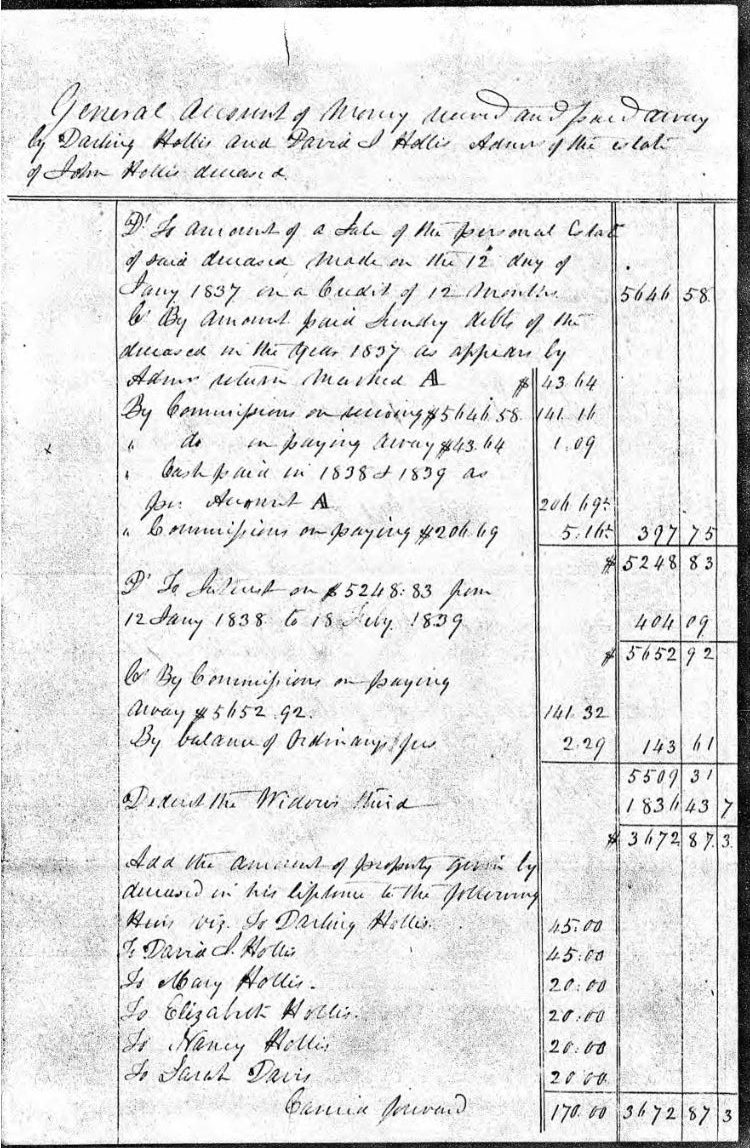 General Account of Money received and paid away
by Darling Hollis and David J Hollis Admrs of the estate
of John Hollis deceased
Dr To amount of a Sale of the personal Estate
of said deceased made on the 12th day of
Jany 1837 on a Credit of 12 Months 5646 58
Cr By amount paid Sundry debts of the
deceased in the year 1837 as appears by
Admrs return marked A $ 43 64
By Commissions on receiving $5646.58 141.16
" do on paying away $43.64 1.09
" Cash paid in 1838 & 1839 as
per Account A 206 69
" Commissions on paying $206.69 5.16 397 75
$ 5248 83
Dr To Interest on $5248.83 from
12 Jany 1838 to 18 Feby 1839 404 09
$ 5652 92
Cr By Commissions on paying
away $5652.92 141.32
By balance of Ordinarys fees 2.29 143 61
5509 31
Deduct the Widows third 1836 43 7
$ 3672 87.3
Add the amount of property given by
deceased in his lifetime to the following
Heirs viz. To Darling Hollis 45.00
To David J. Hollis 45.00
To Mary Hollis 20.00
To Elizabeth Hollis 20.00
To Nancy Hollis 20.00
To Sarah Davis 20.00
Carried forward 170.00 3672 87 3